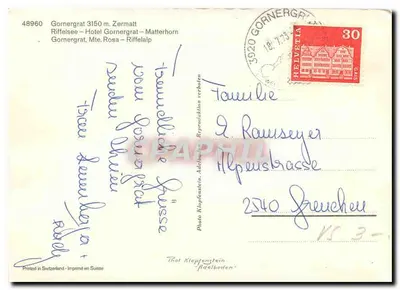 48960 Gornergrat 3150 m. Zermatt
Riffelsee – Hotel Gornergrat – Matterhorn
Gornergrat, Mte. Rosa – Riffelalp
Freundliche Grüsse
vom Gornergrat
senden Ihnen
Frau
Photo Klopfenstein, Adelboden. Reproduktion verboten
3920 GORNERGRAT
HELVETIA
30
Familie
E. Ramseyer
Alpenstrasse
2540 Grenchen
VS 3 –
Phot Klopfenstein
Adelboden
Printed in Switzerland - Imprimé en Suisse